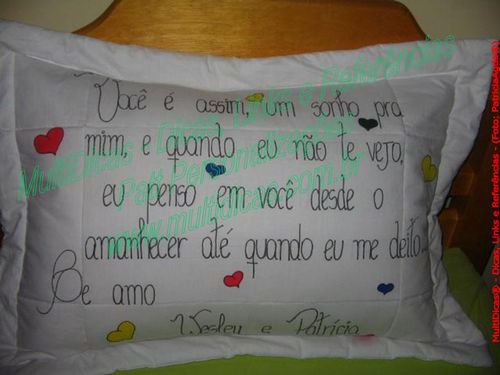 Você é assim, um sonho pra
mim, e quando eu não te vejo,
eu penso em você desde o
amanhecer até quando eu me deito...
Te amo
Wesley e Patrícia
MultiDicas Dicas, Links e Referências
Pat Personalizações
www.multidicas.com.br
MultiDicas® - Dicas, Links e Referências - (Foto: Patrícia